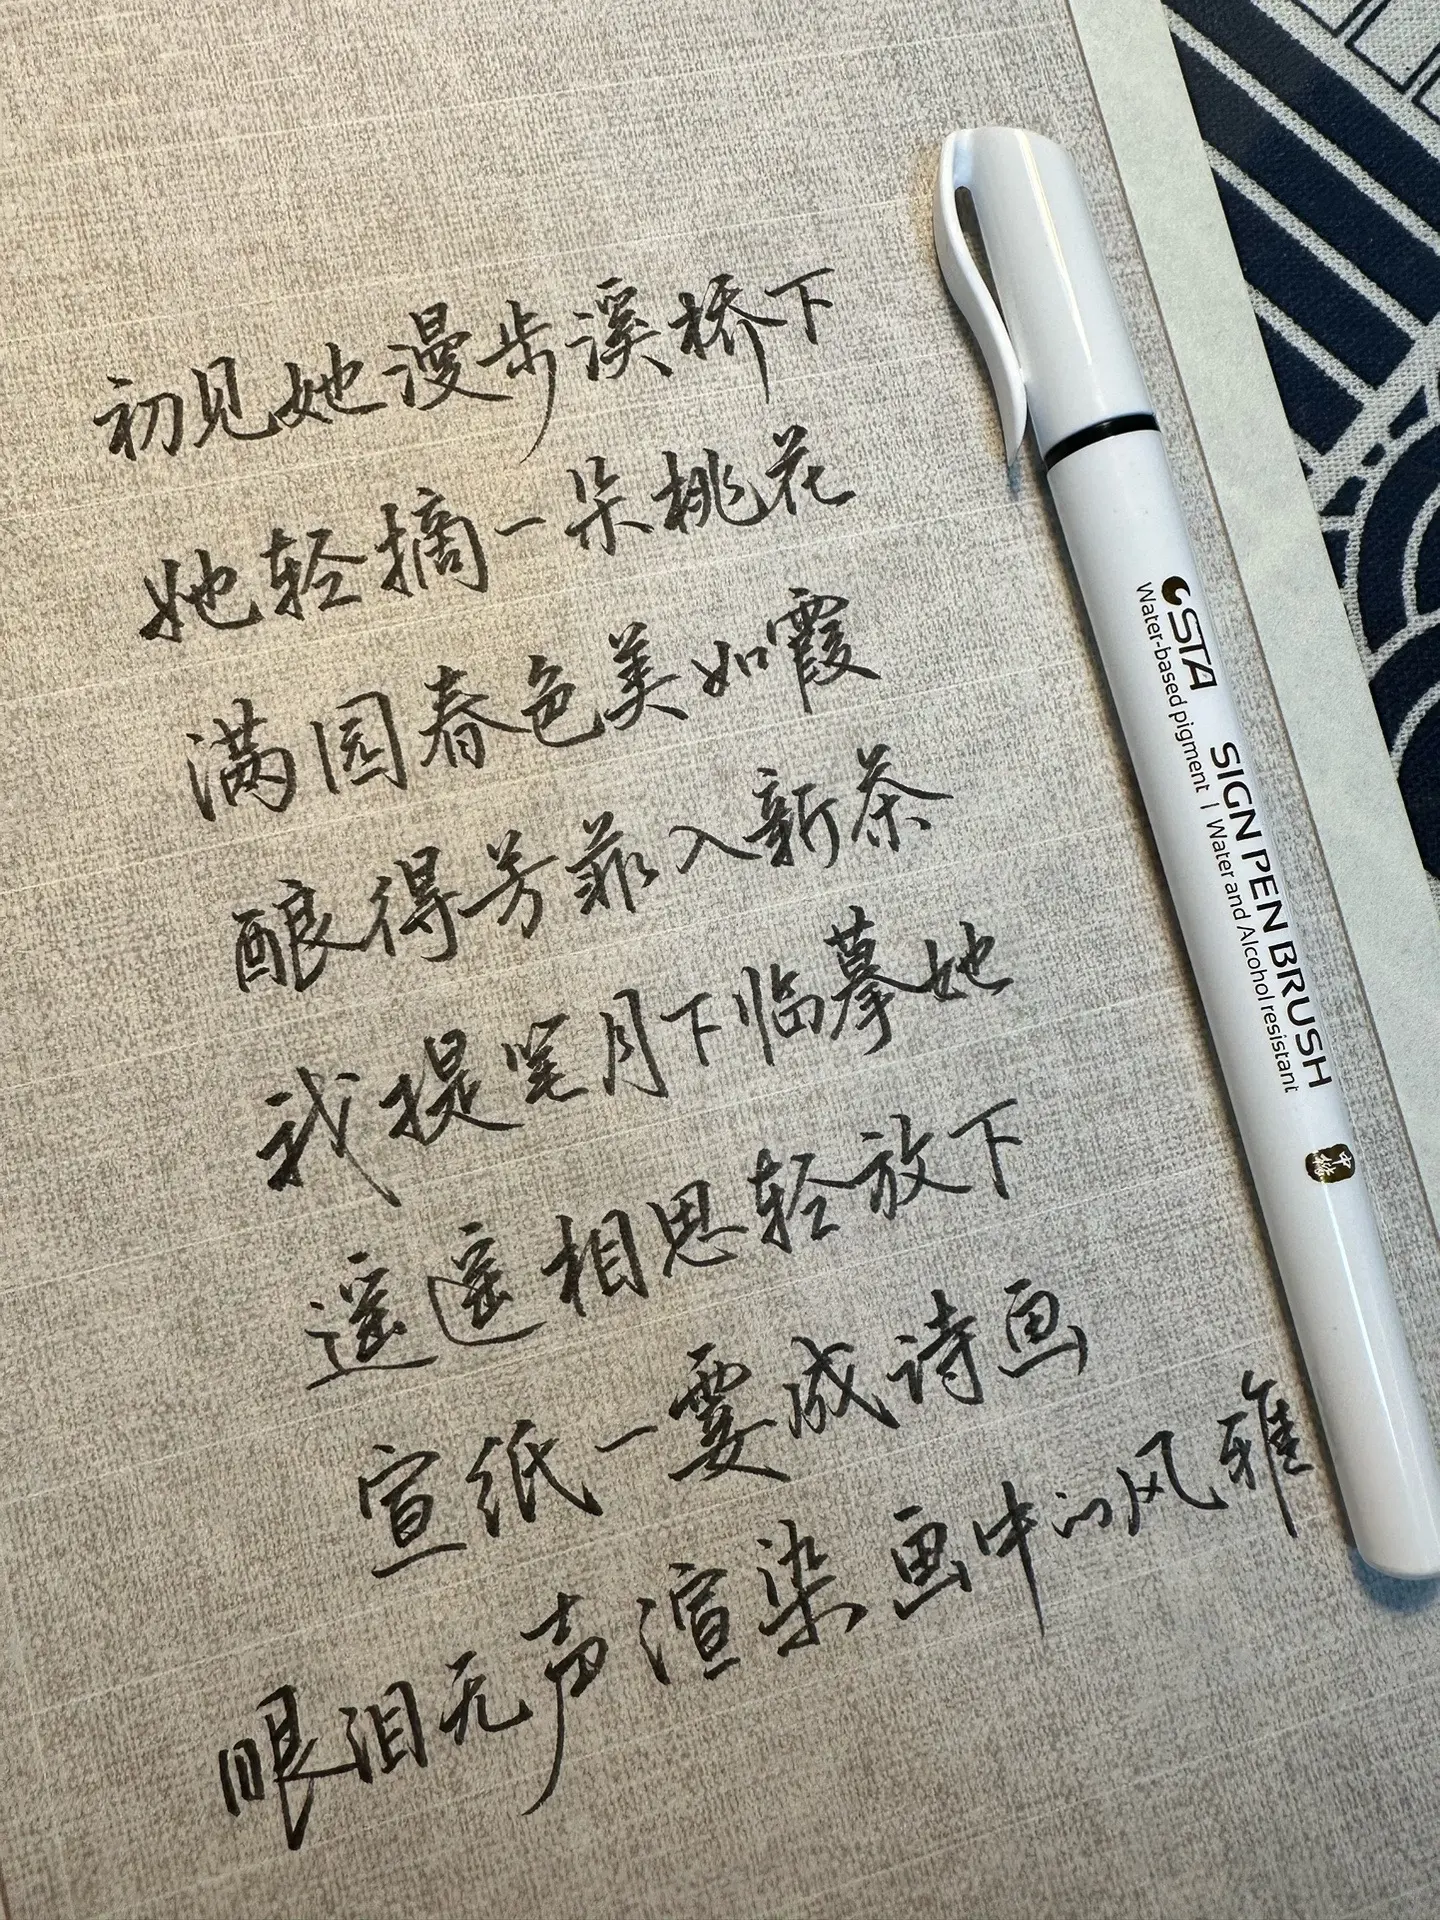 初见她漫步溪桥下
她轻摘一朵桃花
满园春色美如霞
酿得芳菲入新茶
我提笔月下临摹她
遥遥相思轻放下
宣纸一要成诗画
眼泪无声渲染画中的风雅
STA SIGN PEN BRUSH
Water-based pigment | Water and Alcohol resistant